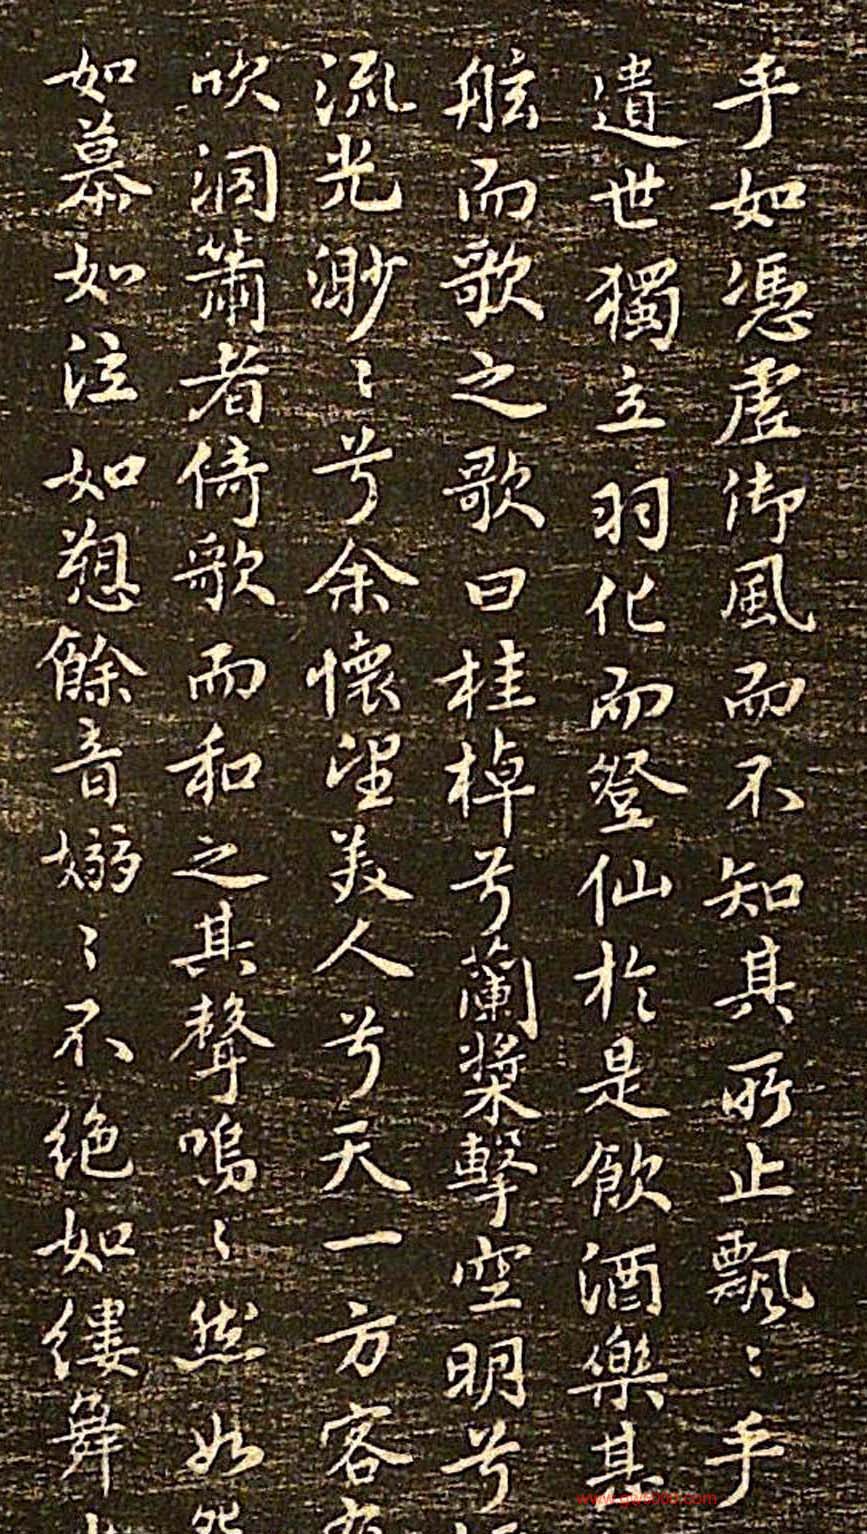 乎如憑虛御風而不知其所止飄〻乎
遺世獨立羽化而登仙於是飲酒樂其
舷而歌之歌曰桂棹兮蘭槳擊空明兮
流光渺〻兮余懷望美人兮天一方客
吹洞簫者倚歌而和之其聲嗚〻然如
如慕如注如愬餘音嫋〻不絕如縷舞